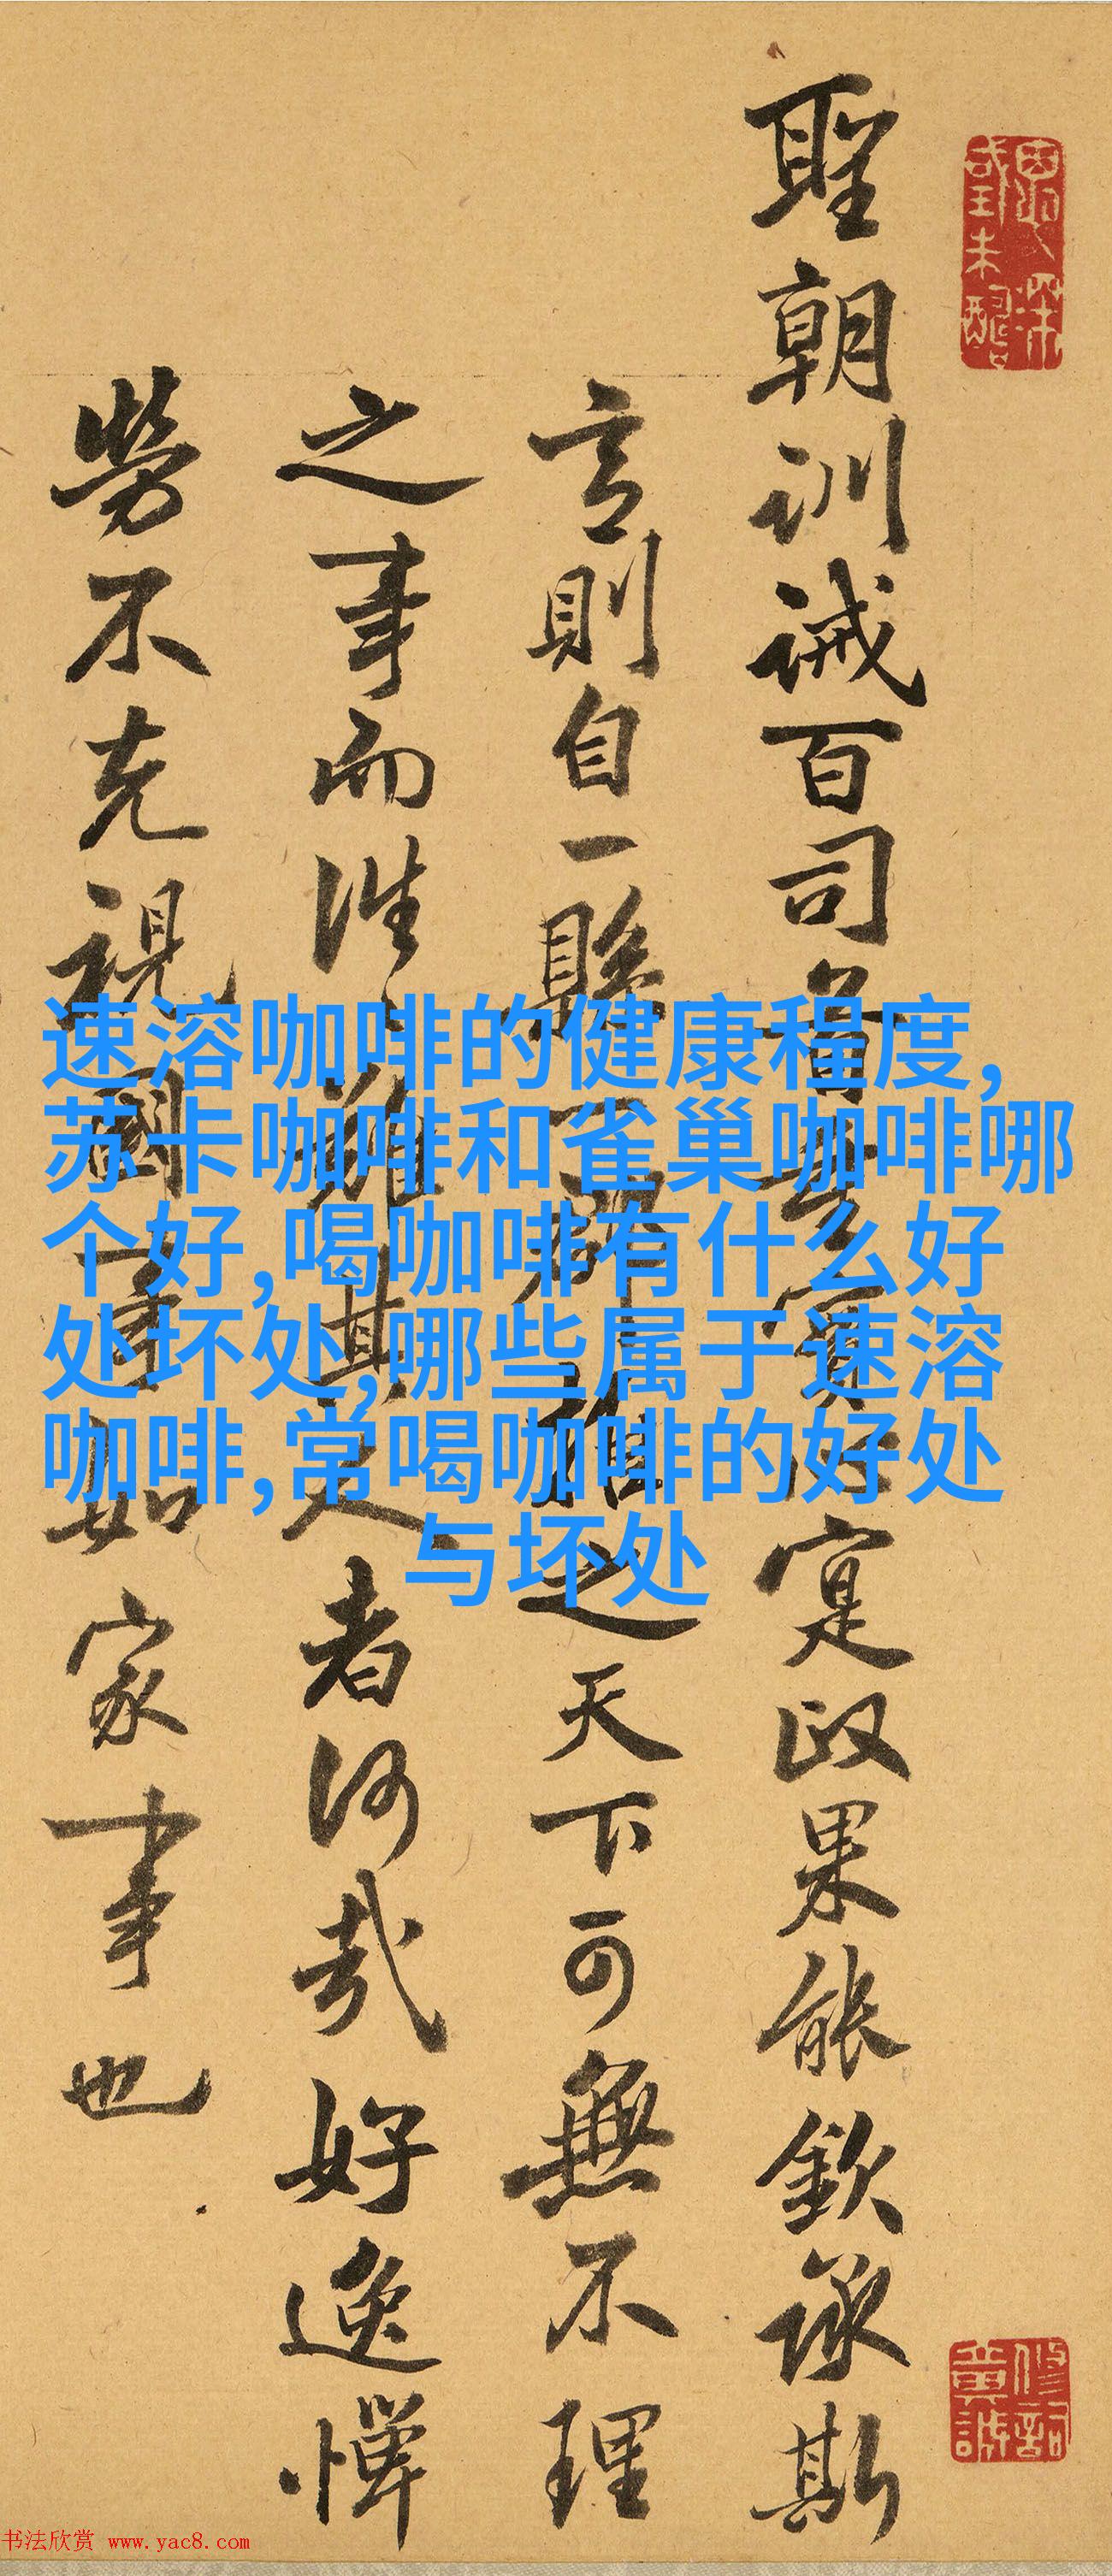 聖朝訓誡百司
寔政果能欽承斯
言則自一縣
之天下可無不理
之事而
者何哉好逸憚
勞不克視國事如家事也
速溶咖啡的健康程度,
苏卡咖啡和雀巢咖啡哪
个好,喝咖啡有什么好
处坏处,哪些属于速溶
咖啡,常喝咖啡的好处
与坏处
书法欣赏 www.yac8.com